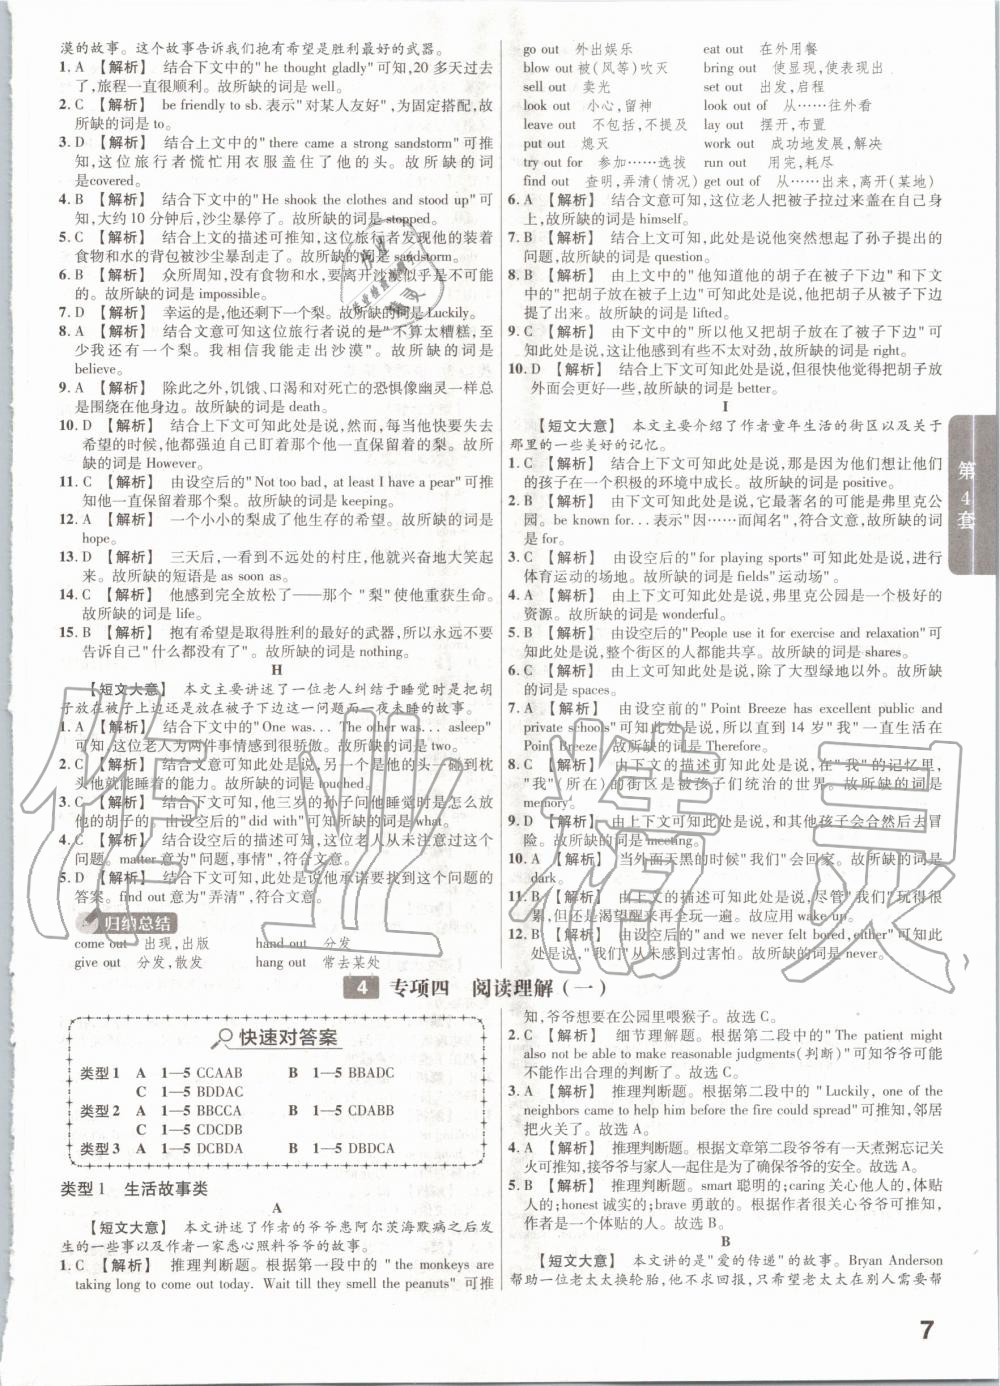 漠的故事。这个故事告诉我们抱有希望是胜利最好的武器。
1. A 【解析】 结合下文中的"he thought gladly"可知,20 多天过去了,旅程一直很顺利。故所缺的词是 well。
2. C 【解析】 be friendly to sb. 表示"对某人友好",为固定搭配,故所缺的词是 to。
3. D 【解析】 结合上文中的"there came a strong sandstorm"可推知,这位旅行者慌忙用衣服盖住了他的头。故所缺的词是covered。
4. B 【解析】 结合下文中的"He shook the clothes and stood up"可知,大约 10 分钟后,沙尘暴停了。故所缺的词是 stopped。
5. C 【解析】 结合上文的描述可推知,这位旅行者发现他的装着食物和水的背包被沙尘暴刮走了。故所缺的词是 sandstorm。
6. B 【解析】 众所周知,没有食物和水,要离开沙漠似乎是不可能的。故所缺的词是 impossible。
7. D 【解析】 幸运的是,他还剩下一个梨。故所缺的词是 Luckily。
8. A 【解析】 结合文意可知这位旅行者说的是"不算太糟糕,至少我还有一个梨。我相信我能走出沙漠"。故所缺的词是 believe。
9. A 【解析】 除此之外,饥饿、口渴和对死亡的恐惧像幽灵一样总是围绕在他身边。故所缺的词是 death。
10. D 【解析】 结合上下文可知此处是说,然而,每当他快要失去希望的时候,他都强迫自己盯着那个他一直保留着的梨。故所缺的词是 However。
11. C 【解析】 由设空后的"Not too bad, at least I have a pear"可推知他一直保留着那个梨。故所缺的词是 keeping。
12. A 【解析】 一个小小的梨成了他生存的希望。故所缺的词是 hope。
13. D 【解析】 三天后,一看到不远处的村庄,他就兴奋地大笑起来。故所缺的短语是 as soon as。
14. C 【解析】 他感到完全放松了——那个"梨"使他重获生命。故所缺的词是 life。
15. B 【解析】 抱有希望是取得胜利的最好的武器,所以永远不要告诉自己"什么都没有了"。故所缺的词是 nothing。
H
【短文大意】 本文主要讲述了一位老人纠结于睡觉时是把胡子放在被子上边还是放在被子下边这一问题而一夜未睡的故事。
1. A 【解析】 结合下文中的"One was... The other was... asleep"可知,这位老人为两件事情感到很骄傲。故所缺的词是 two。
2. C 【解析】 结合文意可知此处是说,另一个是他一碰到枕头他就能睡着的能力。故所缺的词是 touched。
3. C 【解析】 结合上下文可知,他三岁的孙子问他睡觉时是怎么放他的胡子的。由设空后的"did with"可知所缺的词是 what。
4. C 【解析】 结合设空后的描述可知,这位老人从未注意过这个问题。matter 意为"问题,事情",符合文意。
5. D 【解析】 结合文意可知,此处是说他承诺要找到这个问题的答案。find out 意为"弄清",符合文意。
归纳总结
come out 出现,出版 hand out 分发
give out 分发,散发 hang out 常去某处
go out 外出娱乐 eat out 在外用餐
blow out 被(风等)吹灭 bring out 使显现,使表现出
sell out 卖光 set out 出发,启程
look out 小心,留神 look out of 从……往外看
leave out 不包括,不提及 lay out 摆开,布置
put out 熄灭 work out 成功地发展,解决
try out for 参加……选拔 run out 用完,耗尽
find out 查明,弄清(情况) get out of 从……出来,离开(某地)
6. A 【解析】 结合文意可知,这位老人把被子拉过来盖在自己身上,故所缺的词是 himself。
7. B 【解析】 结合上文可知,此处是说他突然想起了孙子提出的问题,故所缺的词是 question。
8. B 【解析】 由上文中的"他知道他的胡子在被子下边"和下文中的"把胡子放在被子上边"可知此处是说他把胡子从被子下边提了出来。故所缺的词是 lifted。
9. C 【解析】 由下文中的"所以他又把胡子放在了被子下边"可知此处是说,这让他感到有些不太对劲,故所缺的词是 right。
10. D 【解析】 结合上下文可知此处是说,但很快他觉得把胡子放外面会更好一些,故所缺的词是 better。
I
【短文大意】 本文主要介绍了作者童年生活的街区以及关于那里的一些美好的记忆。
1. C 【解析】 结合上下文可知此处是说,那里的父母想让他们的孩子在一个积极的环境中成长。故所缺的词是 positive。
2. B 【解析】 由下文可知此处是说,它最著名的可能是弗里克公园。be known for... 表示"因……而闻名",符合文意,故所缺的词是 for。
3. C 【解析】 由设空后的"for playing sports"可知此处是说,进行体育运动的场地。故所缺的词是 fields"运动场"。
4. B 【解析】 由下文的描述可知此处是说,弗里克公园是一个极好的资源。故所缺的词是 wonderful。
5. B 【解析】 由设空后的"People use it for exercise and relaxation"可知此处是说,整个街区的人都能共享。故所缺的词是 shares。
6. C 【解析】 由上文可知此处是说,除了大型绿地以外。故所缺的词是 spaces。
7. A 【解析】 由设空前的"Point Breeze has excellent public and private schools"可知此处是说,所以直到 14 岁"我"一直生活在 Point Breeze。故所缺的词是 Therefore。
8. C 【解析】 由下文的描述可知此处是说,在"我"的记忆里,"我"(所在)的街区是被孩子们统治的世界。故所缺的词是 memory。
9. D 【解析】 由下文可知此处是说,和其他孩子会合然后去冒险。故所缺的词是 meeting。
10. A 【解析】 当外面天黑的时候"我们"会回家。故所缺的词是 dark。
11. A 【解析】 由下文的描述可知此处是说,尽管"我们"玩得很累,但还是渴望醒来再全玩一遍。故应用 wake up。
12. B 【解析】 由设空后的"and we never felt bored, either"可知此处是说,"我们"从未感到过害怕。故所缺的词是 never。
4 专项四 阅读理解(一)
快速对答案
类型 1 A 1—5 CCAAB B 1—5 BBADC
C 1—5 BDDAC
类型 2 A 1—5 BBCCA B 1—5 CDABB
C 1—5 CDCDB
类型 3 A 1—5 DCBDA B 1—5 DBDCA
类型 1 生活故事类
A
【短文大意】 本文讲述了作者的爷爷患阿尔茨海默病之后发生的一些事以及作者一家悉心照料爷爷的故事。
1. C 【解析】 推理判断题。根据第一段中的"the monkeys are taking long to come out today. Wait till they smell the peanuts"可推
知,爷爷想要在公园里喂猴子。故选 C。
2. C 【解析】 细节理解题。根据第二段中的"The patient might also not be able to make reasonable judgments(判断)"可知爷爷可能不能作出合理的判断了。故选 C。
3. A 【解析】 推理判断题。根据第二段中的"Luckily, one of the neighbors came to help him before the fire could spread"可推知,邻居把火关了。故选 A。
4. A 【解析】 推理判断题。根据文章第二段爷爷有一天煮粥忘记关火可推知,接爷爷与家人一起住是为了确保爷爷的安全。故选 A。
5. B 【解析】 推理判断题。smart 聪明的;caring 关心他人的,体贴人的;honest 诚实的;brave 勇敢的。根据全文可推知,作者是一个体贴的人。故选 B。
B
【短文大意】 本文讲的是"爱的传递"的故事。Bryan Anderson 帮助一位老太太换轮胎,他不求回报,只希望老太太在别人需要帮
第4套
7
作业精灵